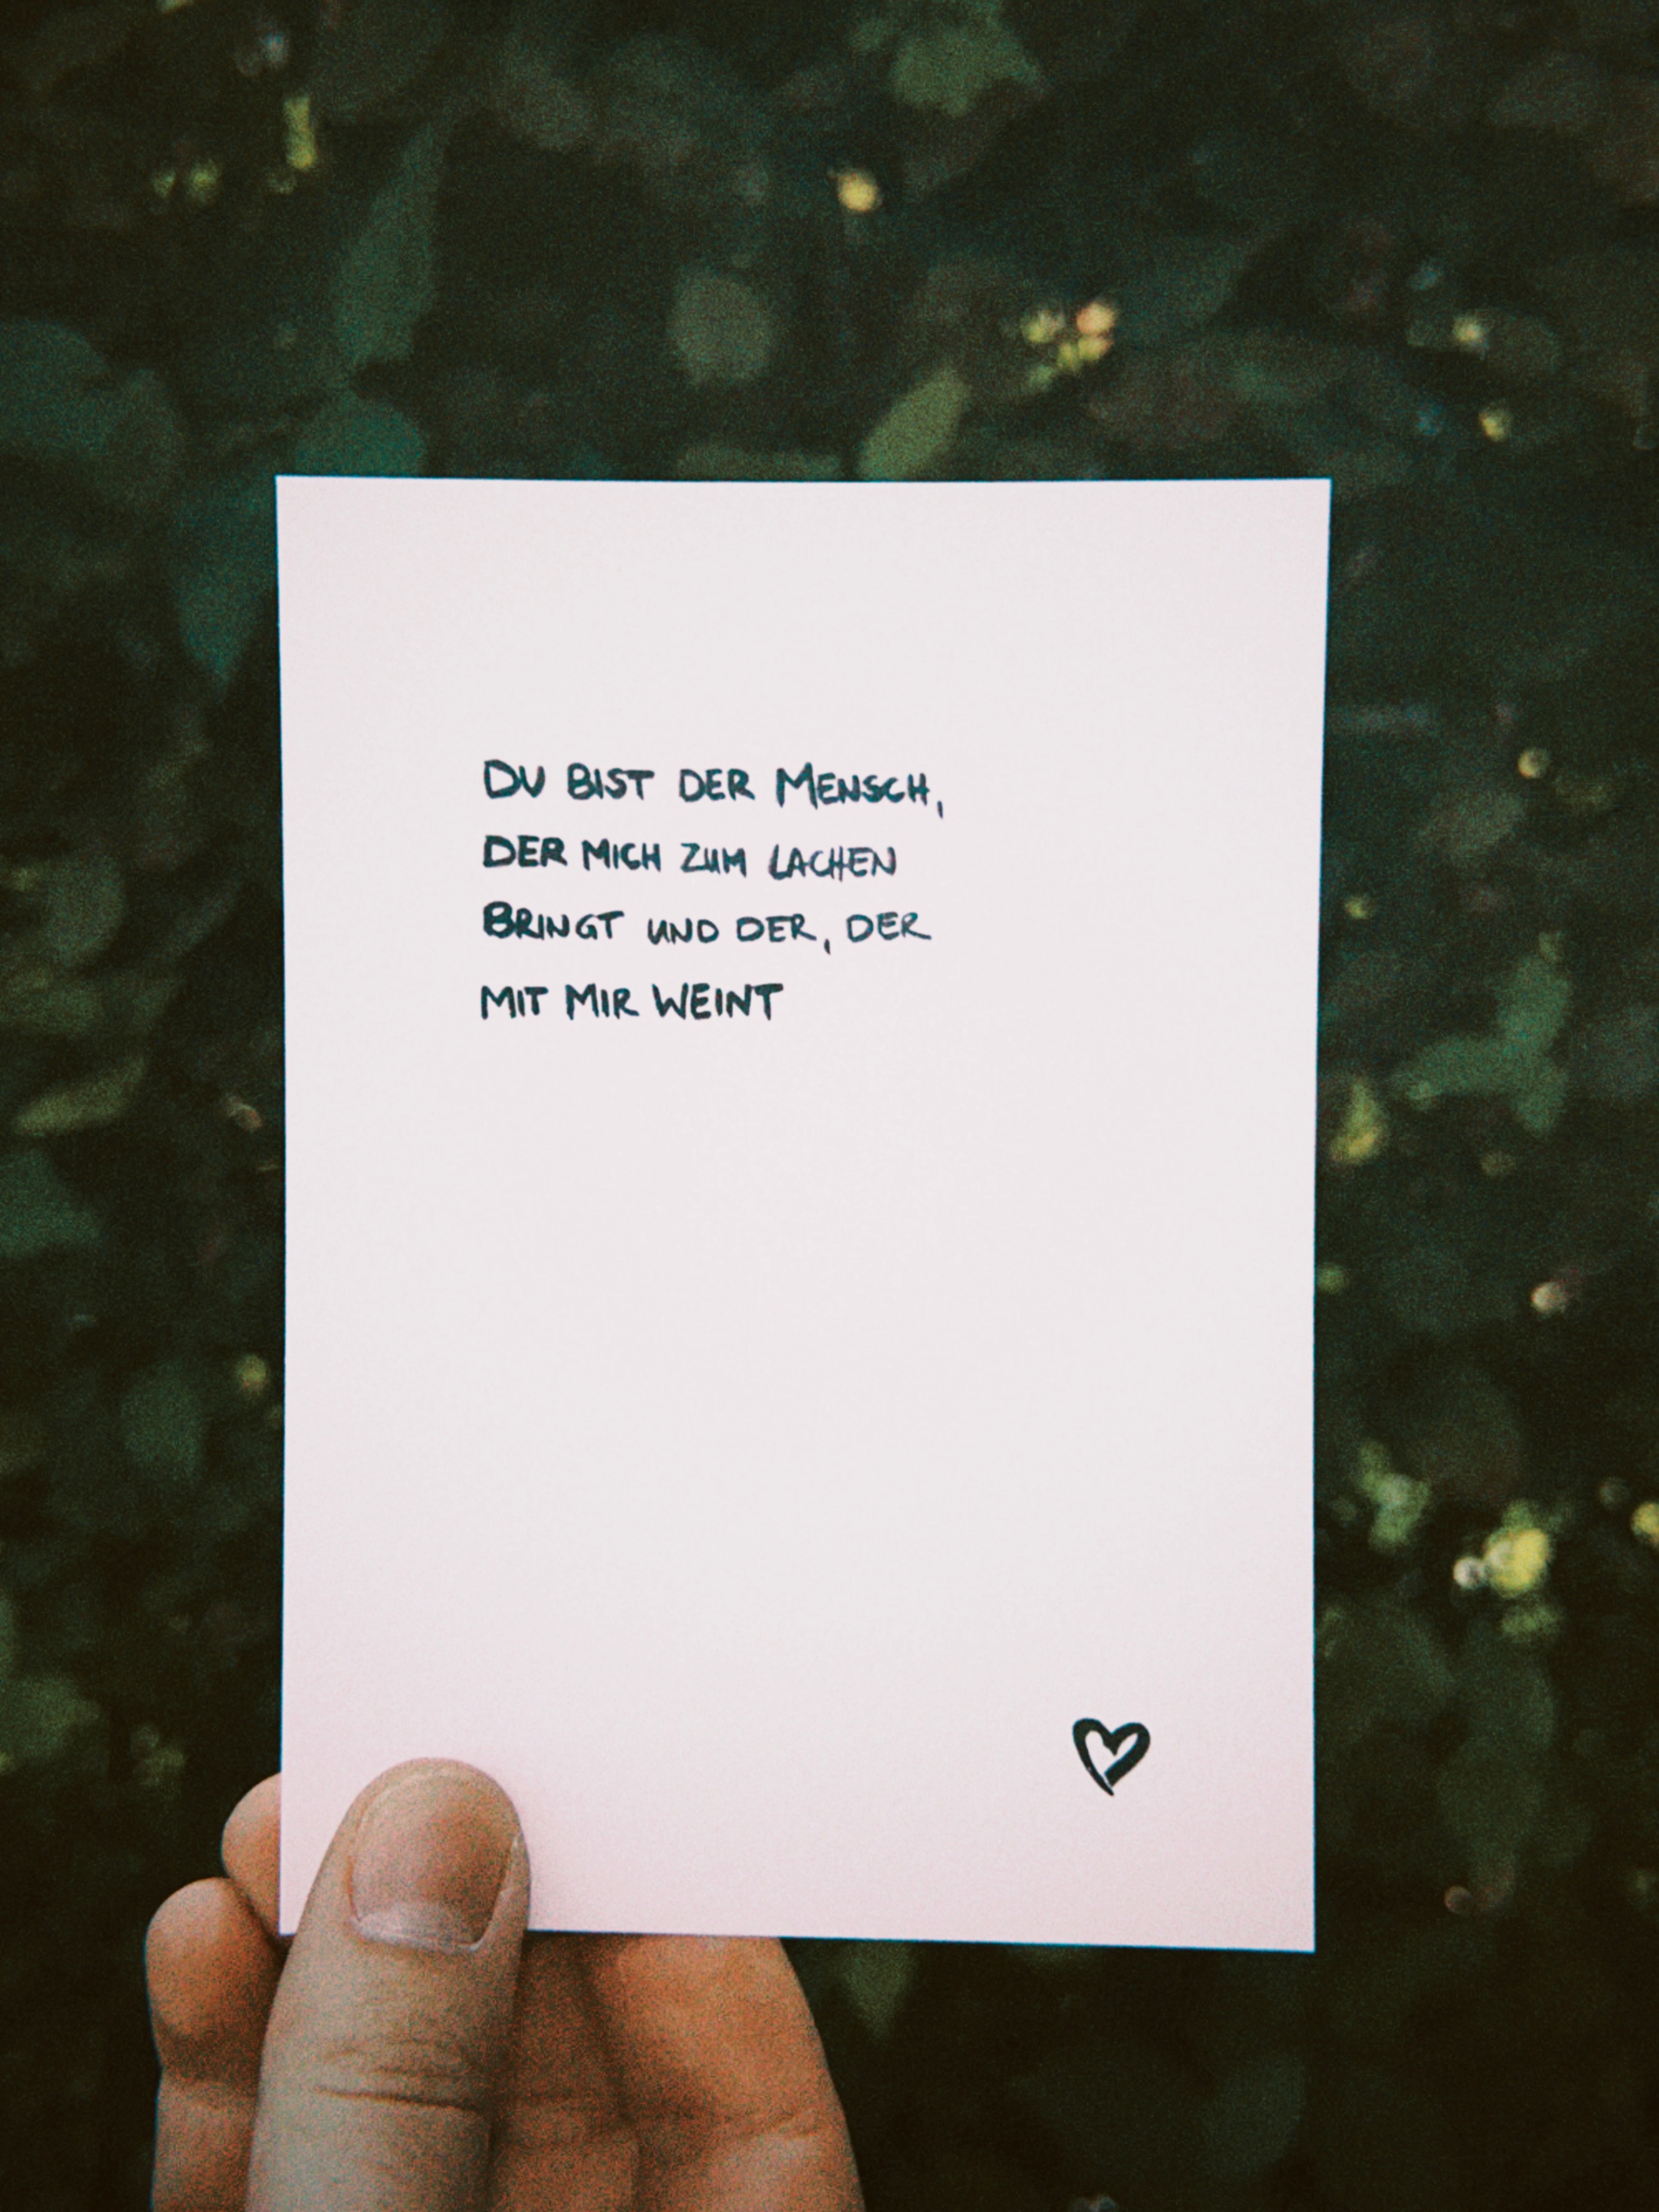 DU BIST DER MENSCH,
DER MICH ZUM LACHEN
BRINGT UND DER, DER
MIT MIR WEINT